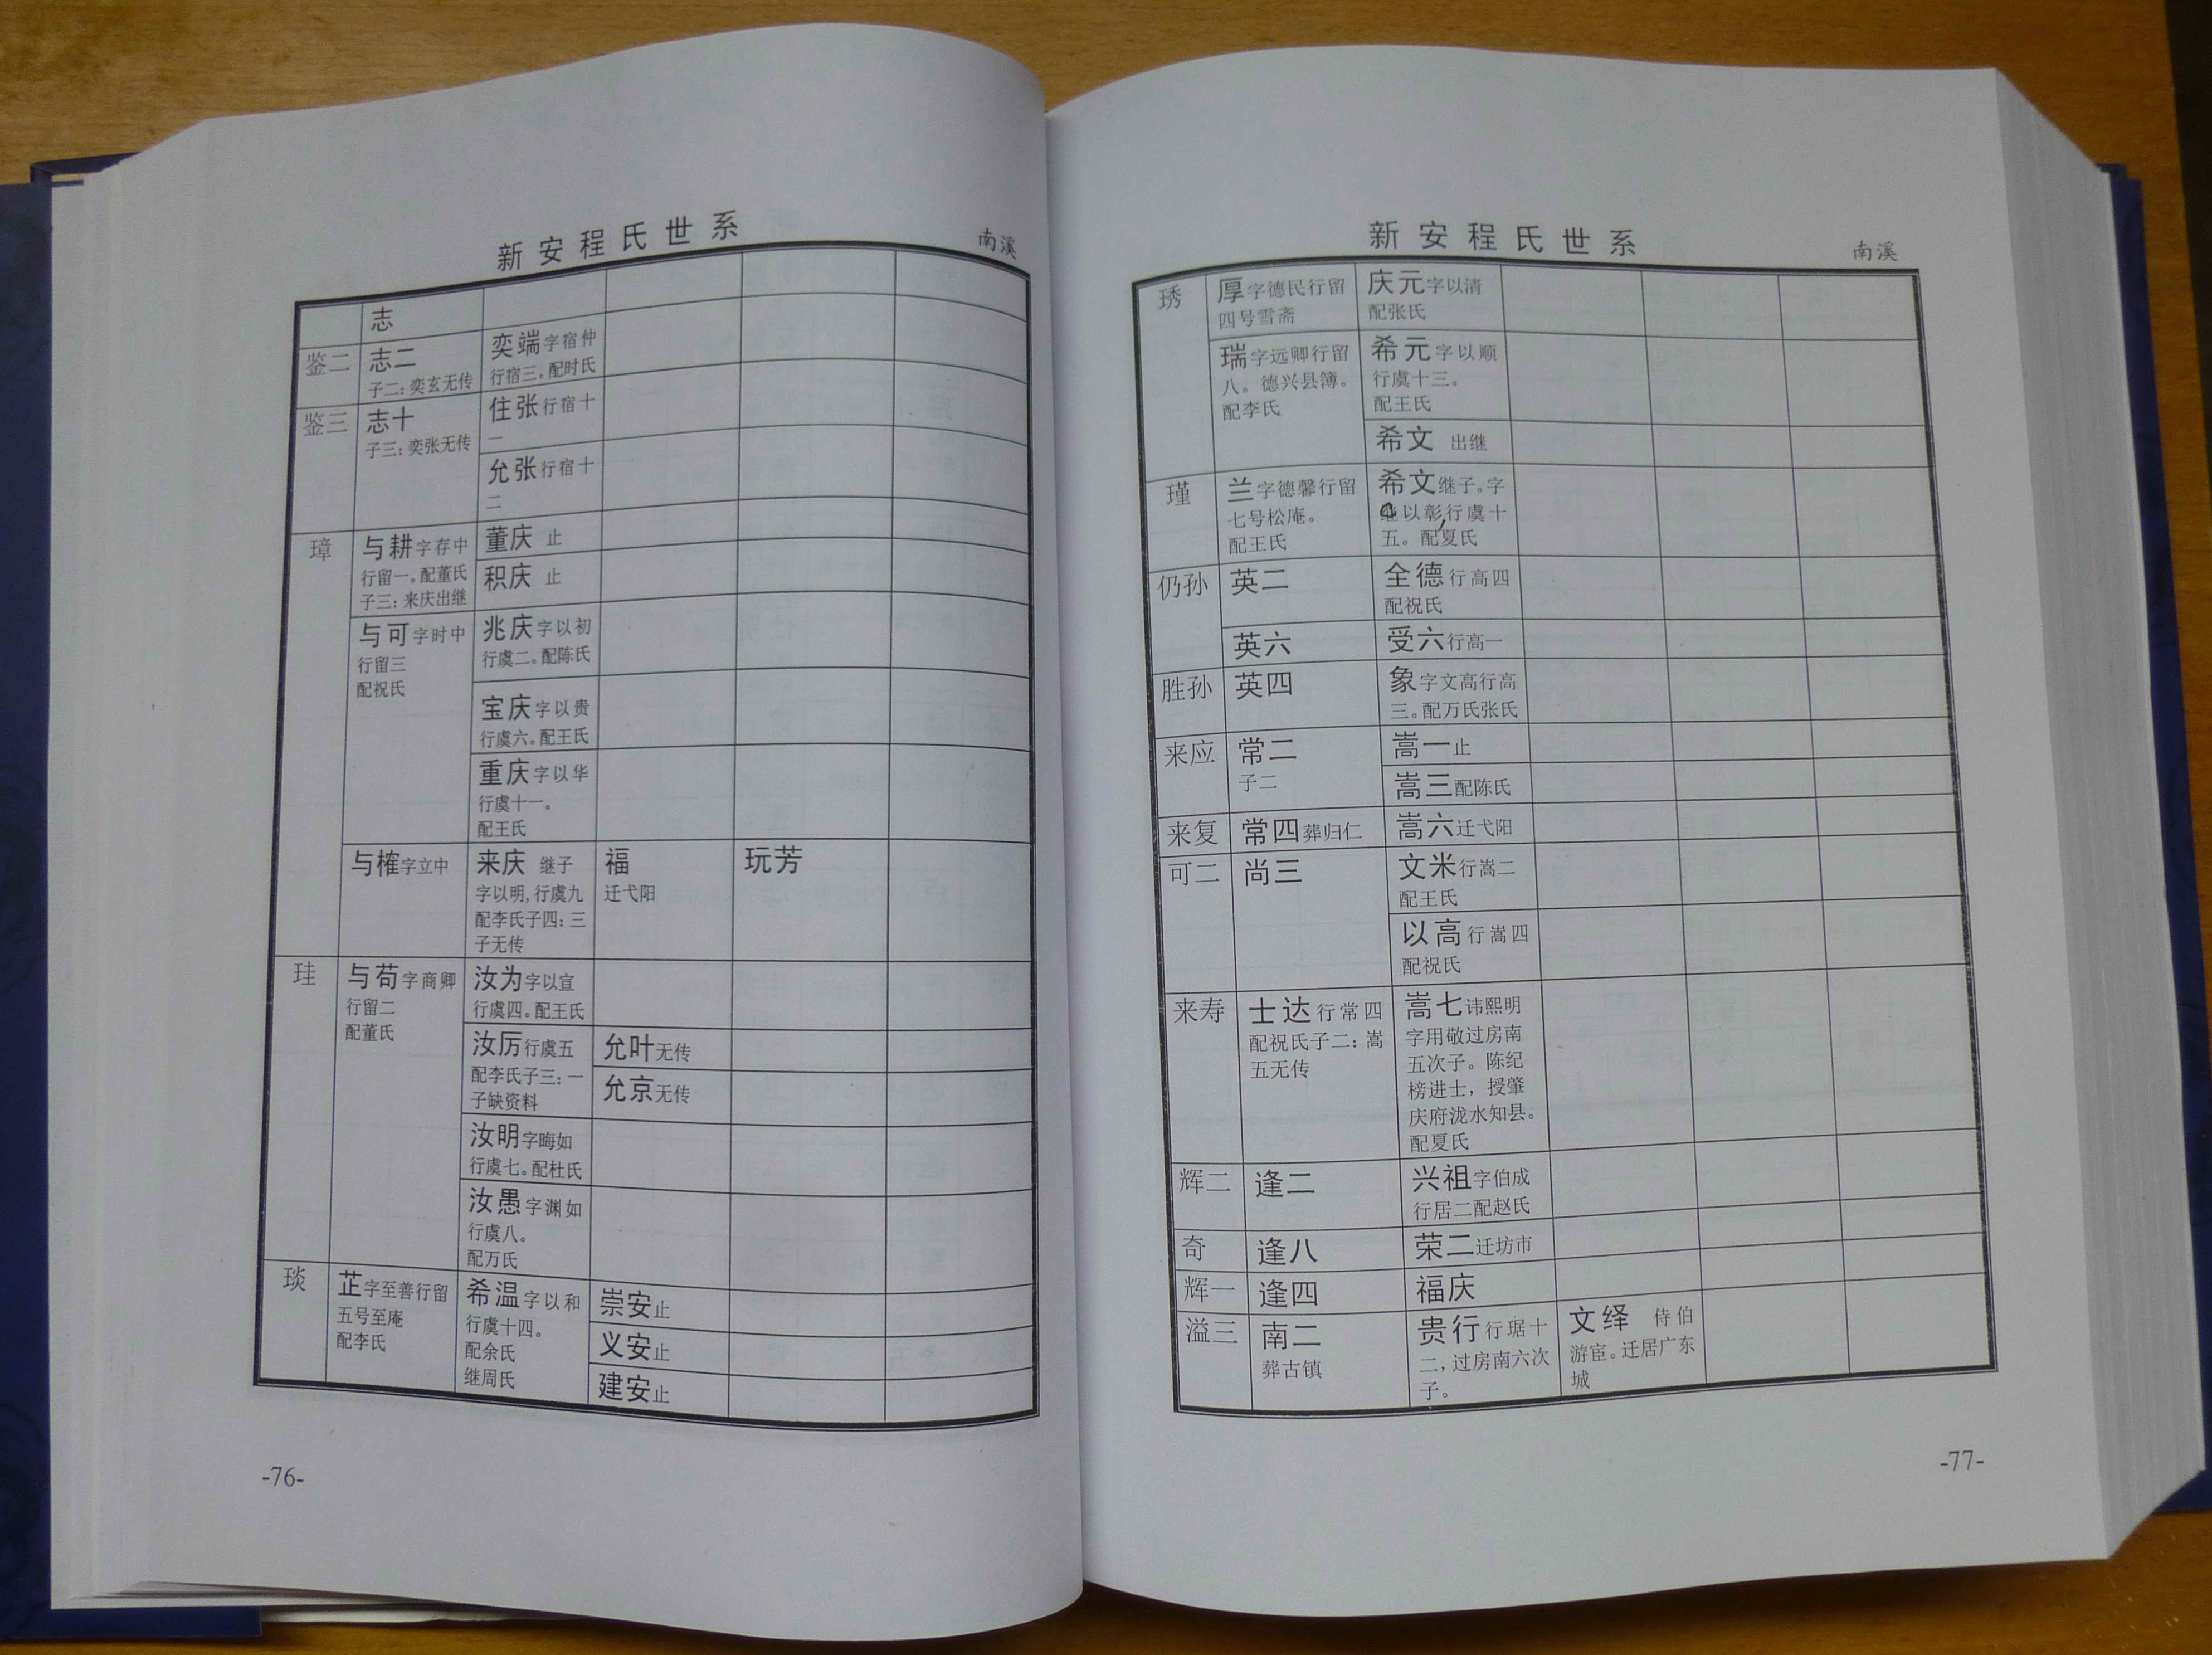 新安程氏世系
南溪
志
鉴二
志二
子二：奕玄无传
奕端字宿仲
行宿三。配时氏
鉴三
志十
子三：奕张无传
住张行宿十
一
允张行宿十
二
璋
与耕字存中
行留一。配董氏
子三：来庆出继
董庆 止
积庆 止
与可字时中
行留三
配祝氏
兆庆字以初
行虞二。配陈氏
宝庆字以贵
行虞六。配王氏
重庆字以华
行虞十一。
配王氏
与榷字立中
来庆 继子
字以明,行虞九
配李氏子四：三
子无传
福
迁弋阳
玩芳
珪
与苟字商卿
行留二
配董氏
汝为字以宣
行虞四。配王氏
汝厉行虞五
配李氏子三：一
子缺资料
允叶无传
允京无传
汝明字晦如
行虞七。配杜氏
汝愚字渊如
行虞八。
配万氏
琰
芷字至善行留
五号至庵
配李氏
希温字以和
行虞十四。
配余氏
继周氏
崇安止
义安止
建安止
-76-
新安程氏世系
南溪
琇
厚字德民行留
四号雪斋
庆元字以清
配张氏
瑞字远卿行留
八。德兴县簿。
配李氏
希元字以顺
行虞十三。
配王氏
希文 出继
瑾
兰字德馨行留
七号松庵。
配王氏
希文继子。字
以彰,行虞十
五。配夏氏
仍孙
英二
全德行高四
配祝氏
英六
受六行高一
胜孙
英四
象字文高行高
三。配万氏张氏
来应
常二
子二
嵩一止
嵩三配陈氏
来复
常四葬归仁
嵩六迁弋阳
可二
尚三
文米行嵩二
配王氏
以高行嵩四
配祝氏
来寿
士达行常四
配祝氏子二：嵩
五无传
嵩七讳熙明
字用敬过房南
五次子。陈纪
榜进士，授肇
庆府泷水知县。
配夏氏
辉二
逢二
兴祖字伯成
行居二配赵氏
奇
逢八
荣二迁坊市
辉一
逢四
福庆
溢三
南二
葬古镇
贵行行琚十
二,过房南六次
子。
文绎 侍伯
游宦。迁居广东
城
-77-